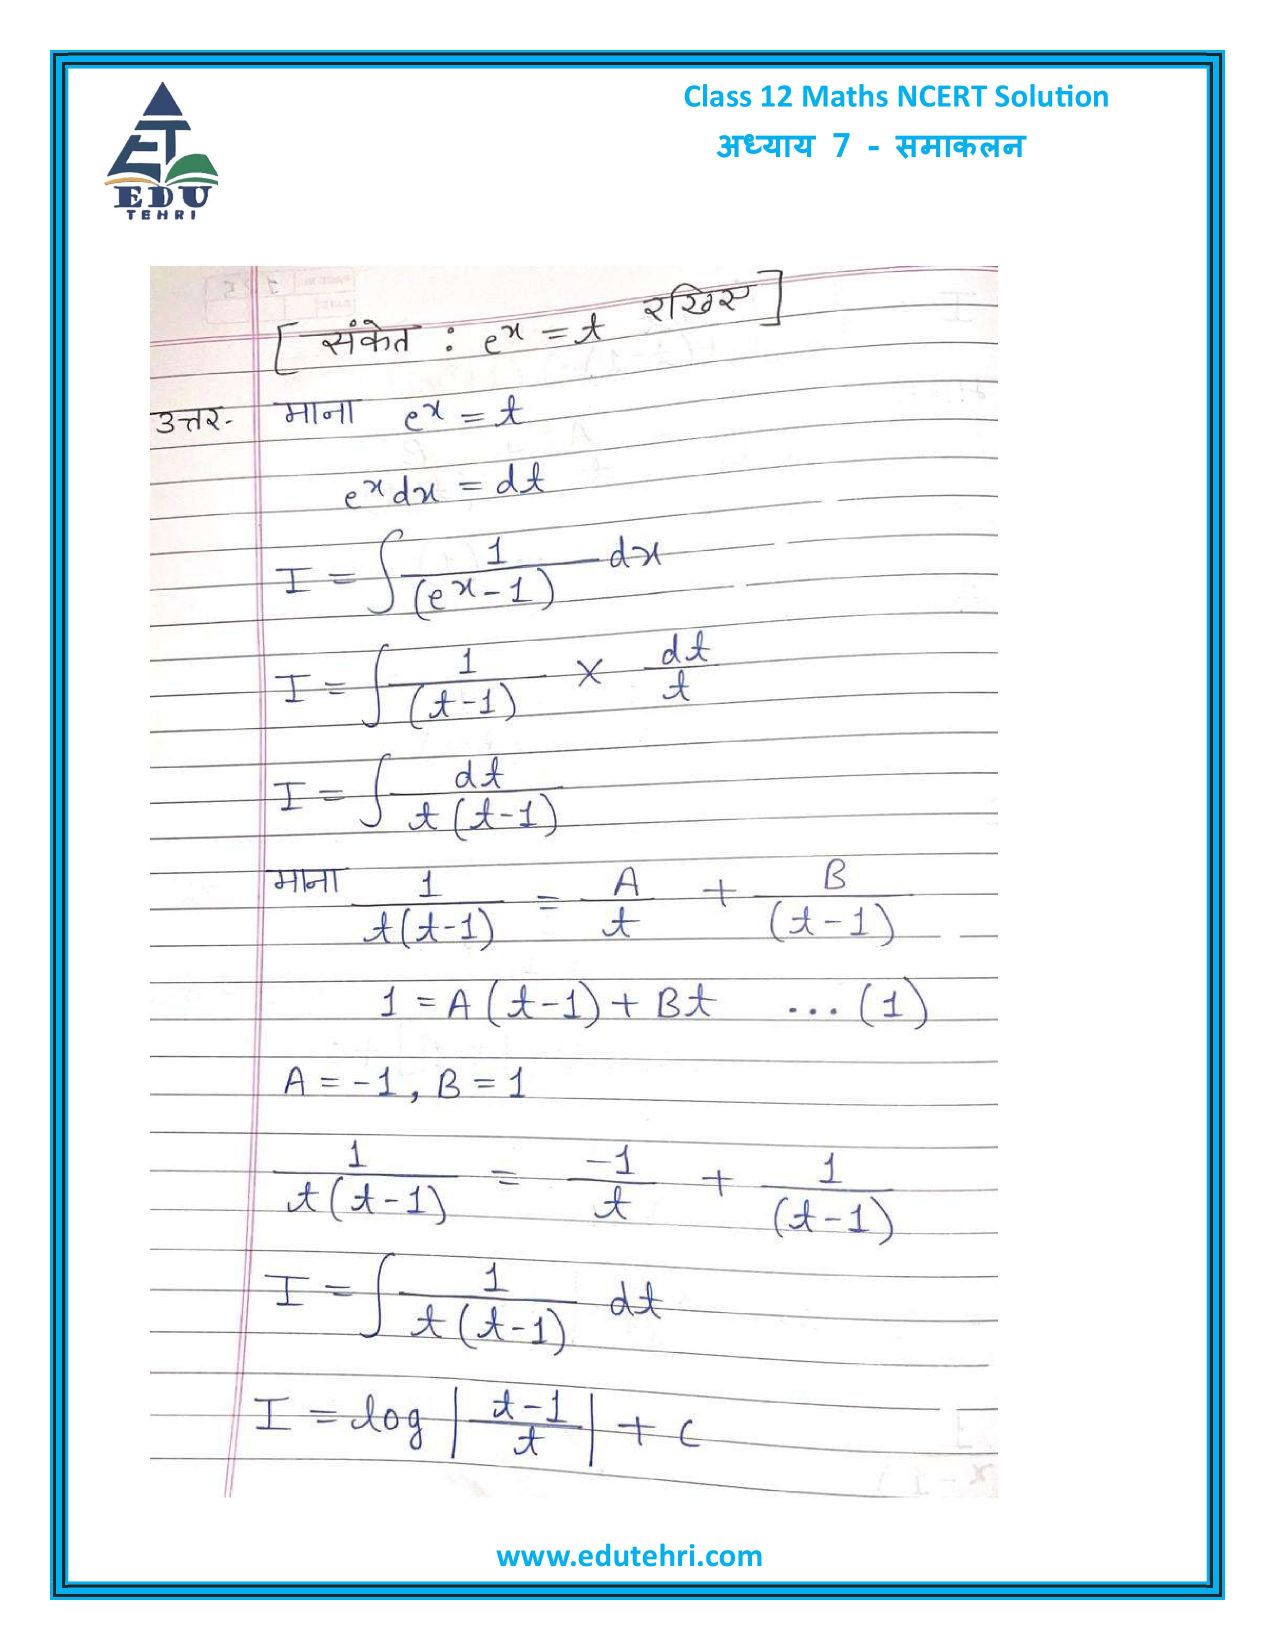 Class 12 Maths NCERT Solution
अध्याय 7 - समाकलन
ET
EDU
TEHRI
[संकेत : e^x = t रखिए]
उत्तर- माना e^x = t
e^x dx = dt
I = ∫ 1/(e^x - 1) dx
I = ∫ 1/(t-1) × dt/t
I = ∫ dt/t(t-1)
माना 1/t(t-1) = A/t + B/(t-1)
1 = A(t-1) + Bt ...(1)
A = -1, B = 1
1/t(t-1) = -1/t + 1/(t-1)
I = ∫ 1/t(t-1) dt
I = log |t-1/t| + c
www.edutehri.com